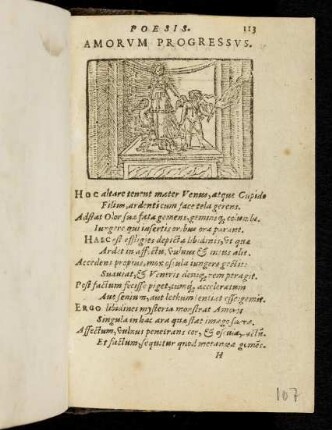 POESIS. 113
AMORVM PROGRESSVS.
HOC altare tenent mater Venus, atque Cupido
Filius, ardenti cum face tela gerens.
Adstat Olor sua fata gemens, geminæq; columbæ
Iungere qui insertis or. bus ora parant.
HAEC est effigies depicta libidinis, ut quæ
Ardet in affectu, vulnus & ignis alit.
Accedens propius, mox oscula iungere gestit:
Suauiat, & Veneris deniq; rem peragit.
Post factum fecisse piget, cumq; acceleratum
Aut senium, aut lethum sentit esse: gemit.
ERGO libidinis mysteria monstrat Amoris
Singula in hac ara quæ stat imago sacra.
Affectum, vulnus penetrans cor, & oscula, actū
Et factum, sequitur quod metanœa gemēs.
H
107